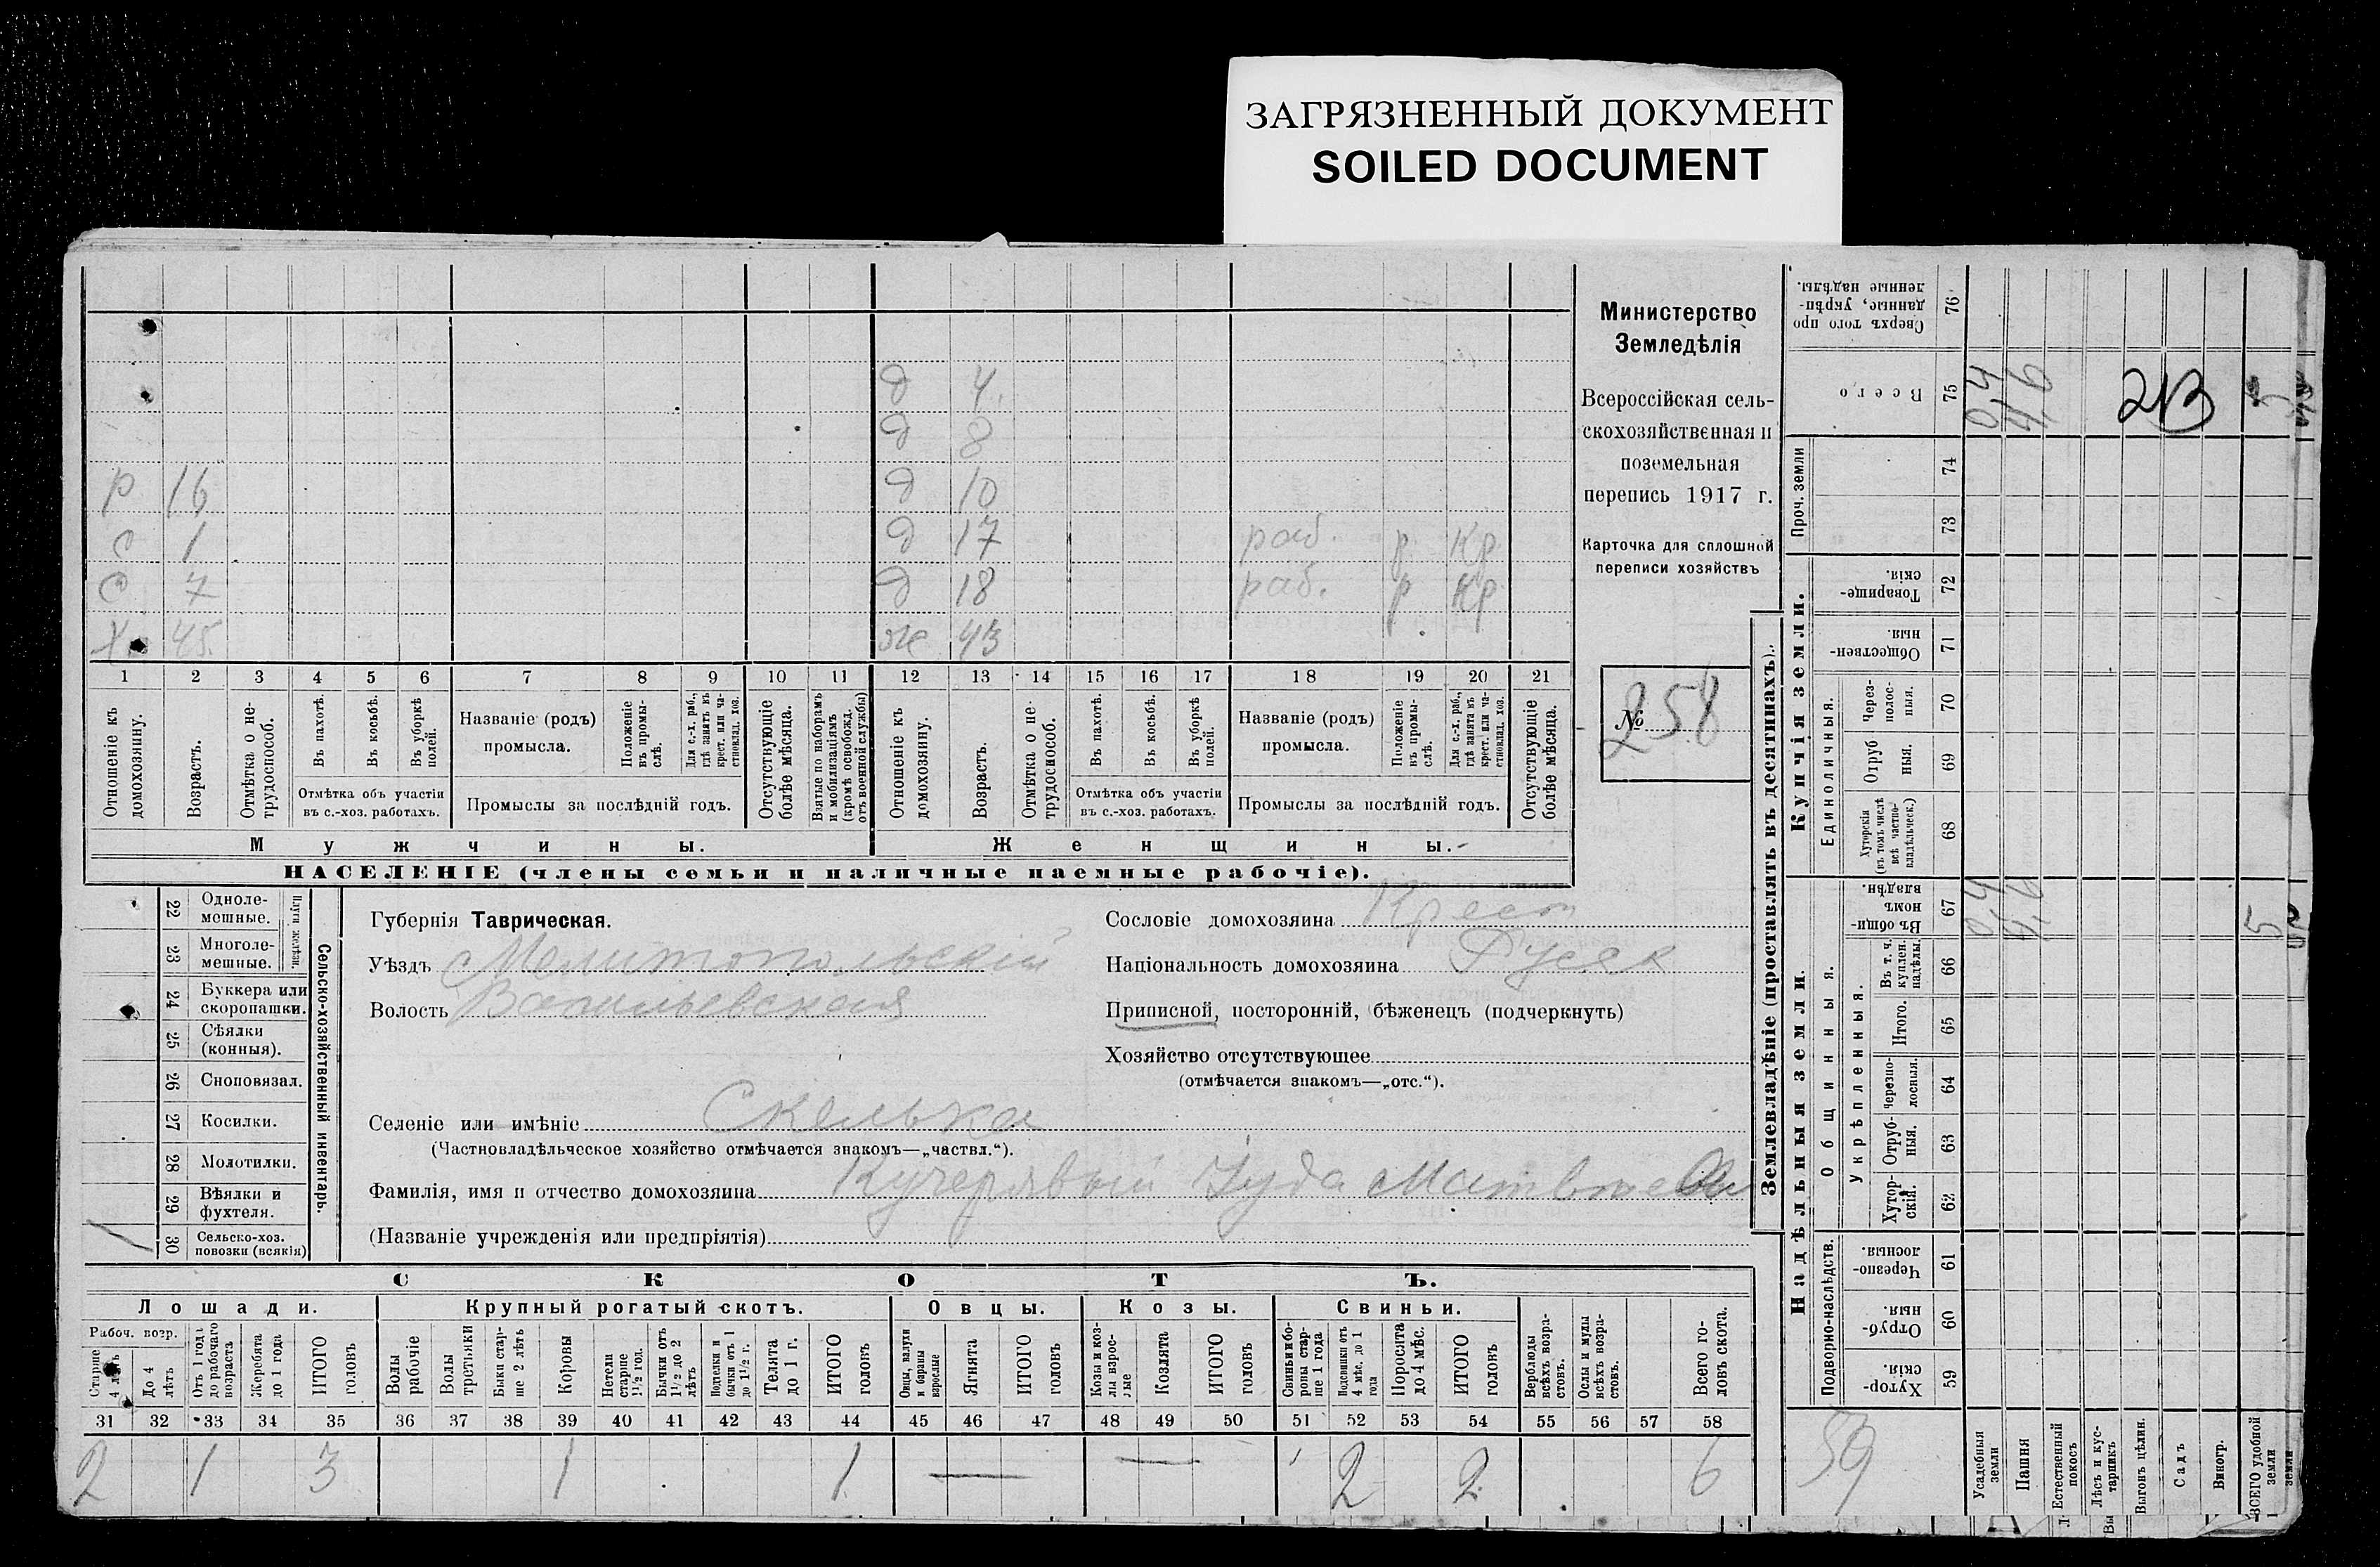 ЗАГРЯЗНЕННЫЙ ДОКУМЕНТ
SOILED DOCUMENT
д 4
д 8
р 16 д 10
с 1 д 17 раб. р Кр
с 7 д 18 раб. р Кр
Х. 45. ж 43
1 2 3 4 5 6 7 8 9 10 11 12 13 14 15 16 17 18 19 20 21
Отношеніе къ домохозяину.
Возрастъ.
Отмѣтка о не-трудоспособ.
Въ пахотѣ.
Въ косьбѣ.
Въ уборкѣ полей.
Отмѣтка объ участіи
въ с.-хоз. работахъ.
Названіе (родъ)
промысла.
Положеніе въ промы-слѣ.
Для с.-х. раб., гдѣ занятъ въ крест. или ча-стновлад. хоз.
Промыслы за послѣдній годъ.
Отсутствующіе болѣе мѣсяца.
Взятые по наборамъ и мобилизаціямъ (кромѣ освобожд. отъ военной службы)
Отношеніе къ домохозяину.
Возрастъ.
Отмѣтка о не-трудоспособ.
Въ пахотѣ.
Въ косьбѣ.
Въ уборкѣ полей.
Отмѣтка объ участіи
въ с.-хоз. работахъ.
Названіе (родъ)
промысла.
Положеніе въ промы-слѣ.
Для с.-х. раб., гдѣ занята въ крест. или ча-стновлад. хоз.
Промыслы за послѣдній годъ.
Отсутствующіе болѣе мѣсяца.
Мужчины. Женщины.
НАСЕЛЕНІЕ (члены семьи и наличные наемные рабочіе).
Министерство
Земледѣлія
Всероссійская сель-
скохозяйственная и
поземельная
перепись 1917 г.
Карточка для сплошной
переписи хозяйствъ
№ 258
22 Одноле-мешные.
23 Многоле-мешные.
Плуги желѣзн.
24 Буккера или скоропашки.
25 Сѣялки (конныя).
26 Сноповязал.
27 Косилки.
28 Молотилки.
29 Вѣялки и фухтеля.
30 Сельско-хоз. повозки (всякія) 1
Сельско-хозяйственный инвентарь.
Губернія Таврическая.
Уѣздъ Мелитопольскій
Волость Васильевская
Сословіе домохозяина Крест
Національность домохозяина Русск
Приписной, посторонній, бѣженецъ (подчеркнуть)
Хозяйство отсутствующее
(отмѣчается знакомъ—„отс.“).
Селеніе или имѣніе Скелька
(Частновладѣльческое хозяйство отмѣчается знакомъ—„частвл.“).
Фамилія, имя и отчество домохозяина Кучерявый Іуда Матвѣев
(Названіе учрежденія или предпріятія)
СКОТЪ.
Лошади. Крупный рогатый скотъ. Овцы. Козы. Свиньи.
Рабоч. возр.
Старше 4 лѣтъ
До 4 лѣтъ
Отъ 1 года до рабочаго возраста
Жеребята до 1 года
ИТОГО головъ
Волы рабочіе
Волы третьяки
Быки стар-ше 2 лѣтъ
Коровы
Нетели старше 1½ год.
Бычки отъ 1½ до 2 лѣтъ
Подтелки и бычки отъ 1 до 1½ г.
Телята до 1 г.
ИТОГО головъ
Овцы, валухи и бараны взрослые
Ягнята
ИТОГО головъ
Козы и коз-лы взрос-лые
Козлята
ИТОГО головъ
Свиньи и бо-ровы стар-ше 1 года
Подсвинки отъ 4 мѣс. до 1 года
Поросята до 4 мѣс.
ИТОГО головъ
Верблюды всѣхъ возра-стовъ.
Ослы и мулы всѣхъ возра-стовъ.
Всего го-ловъ скота.
31 32 33 34 35 36 37 38 39 40 41 42 43 44 45 46 47 48 49 50 51 52 53 54 55 56 57 58
2 1 3 1 1 — — 2 2 6
Землевладѣніе (проставлять въ десятинахъ).
Сверхъ того про данные, укрѣп-ленные надѣлы. 76
Всего 75 04 46 2В 5
Проч. земли 74
73
Купчія земли.
Товарище-скія. 72
Обществен-ныя. 71
Единоличныя.
Через-полос-ныя. 70
Отруб ныя. 69
Хуторскія (въ томъ числѣ всѣ частно-владѣльческ.) 68
Надѣльныя земли.
Общинныя.
Въ общи-номъ владѣн. 67 04 46 5
Укрѣпленныя.
Въ т. ч. куплен. надѣлы. 66
Итого. 65
Черезпо-лосныя. 64
Отруб-ныя. 63
Хутор-скія. 62
Подворно-наслѣдств.
Черезпо-лосныя. 61
Отруб-ныя. 60
Хутор-скія. 59
59
Усадебныя земли
Пашня
Естественный покосъ
Лѣсъ и кус-тарникъ
Выгонъ цѣлин.
Садъ
Виногр.
ВСЕГО удобной земли